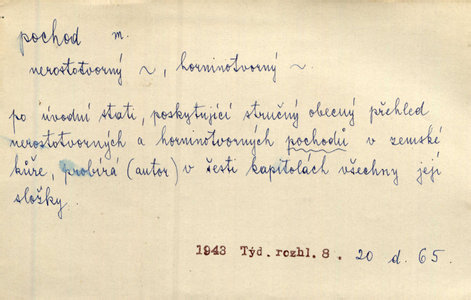 pochod m.
nerostotvorný ~, horninotvorný ~.
po úvodní stati, poskytující stručný obecný přehled
nerostotvorných a horninotvorných pochodů v zemské
kůře, probírá (autor) v šesti kapitolách všechny její
složky.
1943 Týd. rozhl. 8. 20 d. 65.